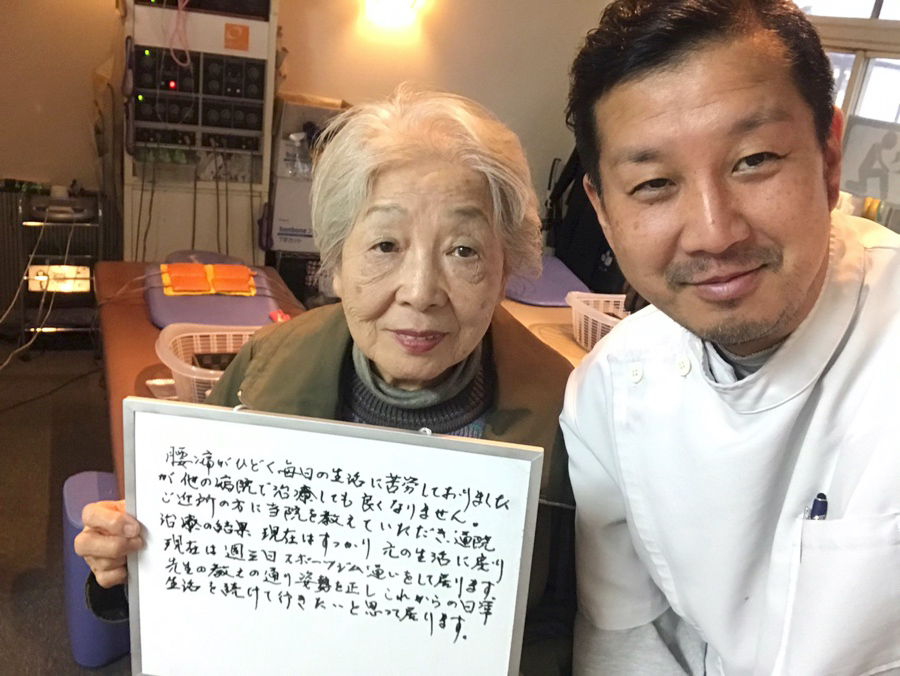 腰痛がひどく毎日の生活に苦労しておりました
が他の病院で治療しても良くなりません。
ご近所の方に当院を教えていただき、通院
治療の結果 現在はすっかり 元の生活に戻り
現在は週三日 スポーツジム通いをして居ります。
先生の教えの通り 姿勢を正し これからの日常
生活を続けて行きたいと思って居ります。